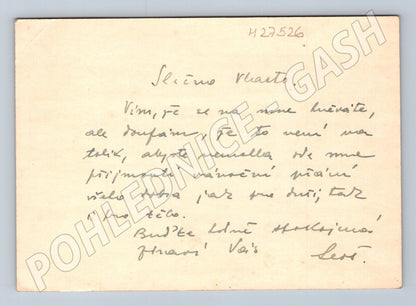 H27526
Slečno Vlasto.
Vím, že se na mne hněváte,
ale doufám, že to není na
tolik, abyste nemohla ode mne
přijmouti vánoční přání
všeho dobra jak pro duši, tak
i pro tělo.
Buďte hodně spokojená
zdraví Vás
POHLEDNICE - GASH